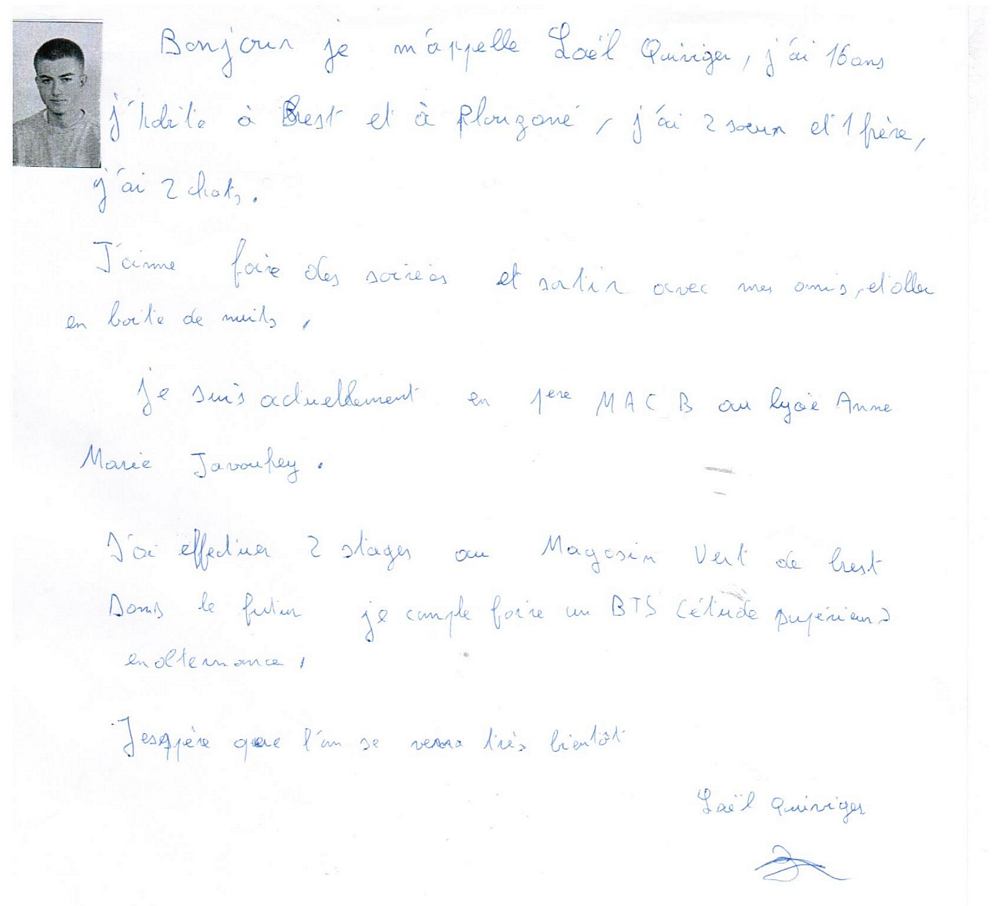 Bonjour je m'appelle Laël Quiviger, j'ai 16 ans
j'habite à Brest et à Plouzané, j'ai 2 soeur et 1 frère,
j'ai 2 chats.
J'aime faire des soirées et sortir avec mes amis, et aller
en boite de nuits,
je suis actuellement en 1ere MAC B au lycée Anne
Marie Javouhey.
J'ai effectuer 2 stages au Magasin Vert de brest
Dans le futur je compte faire un BTS (étude supérieur)
en alternance,
J'espère que l'on se verra très bientôt
Laël Quiviger